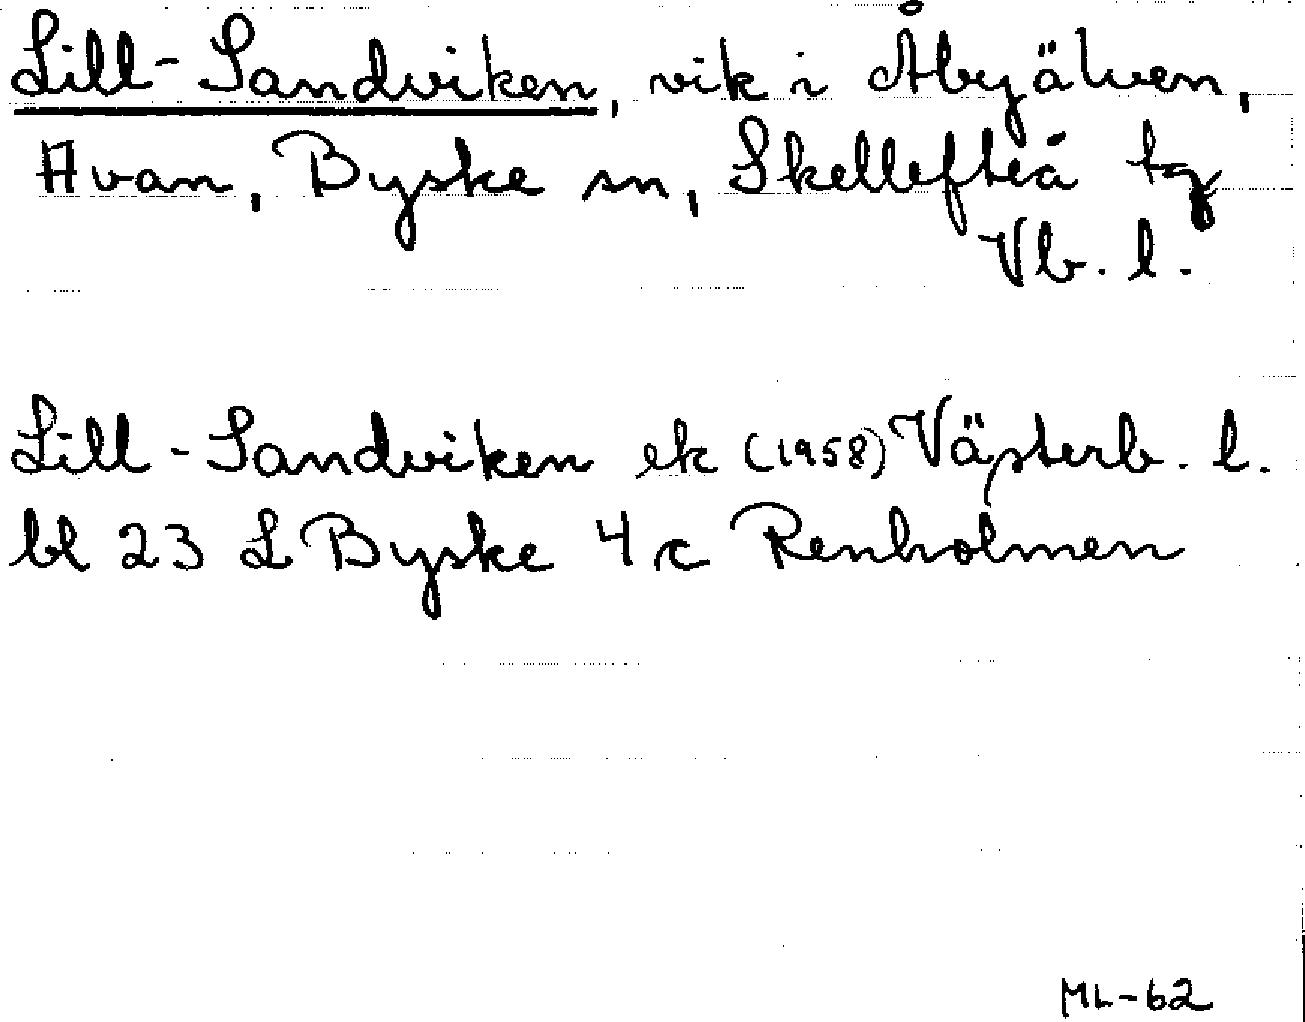 Lill-Sandviken, vik i Åbyälven,
Avan, Byske sn, Skellefteå tg
Vb. l.
Lill-Sandviken ek (1958) Västerb. l.
bl 23 L Byske 4 c Renholmen
ML-62